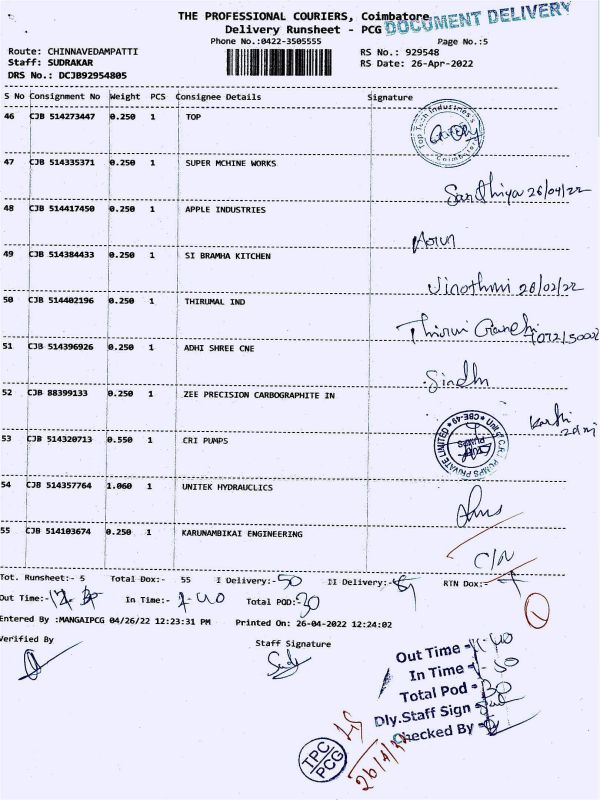 THE PROFESSIONAL COURIERS, Coimbatore
DOCUMENT DELIVERY
Delivery Runsheet - PCG
Phone No.:0422-3505555
Page No.:5
Route: CHINNAVEDAMPATTI
RS No.: 929548
Staff: SUDRAKAR
RS Date: 26-Apr-2022
DRS No.: DCJB92954805
S No Consignment No Weight PCS Consignee Details Signature
46 CJB 514273447 0.250 1 TOP
47 CJB 514335371 0.250 1 SUPER MCHINE WORKS
Sandhiya 26/04/22
48 CJB 514417450 0.250 1 APPLE INDUSTRIES
Arun
49 CJB 514384433 0.250 1 SI BRAMHA KITCHEN
50 CJB 514402196 0.250 1 THIRUMAL IND
51 CJB 514396926 0.250 1 ADHI SHREE CNE
Sindhu
52 CJB 88399133 0.250 1 ZEE PRECISION CARBOGRAPHITE IN
53 CJB 514320713 0.550 1 CRI PUMPS
54 CJB 514357764 1.060 1 UNITEK HYDRAUCLICS
55 CJB 514103674 0.250 1 KARUNAMBIKAI ENGINEERING
C/N
Tot. Runsheet:- 5 Total Dox:- 55 I Delivery:- 50 II Delivery:- RTN Dox:-
Out Time:- In Time:- 1-40 Total POD:- 30
Entered By :MANGAIPCG 04/26/22 12:23:31 PM Printed On: 26-04-2022 12:24:02
Verified By
Staff Signature
Out Time -
In Time -
Total Pod - 30
Dly.Staff Sign -
Checked By -
TPC
PCG